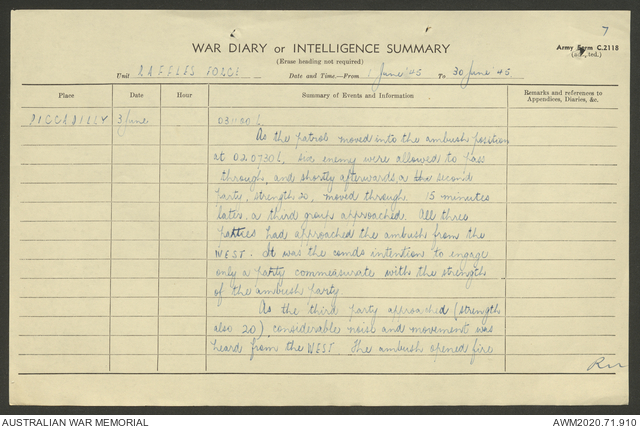 7
WAR DIARY or INTELLIGENCE SUMMARY
Army Form C.2118
(Erase heading not required)
Unit RAFFLES FORCE Date and Time:—From 1 June '45 To 30 June '45
Place Date Hour Summary of Events and Information Remarks and references to Appendices, Diaries, &c.
PICCADILLY 3 June
As the patrol moved into the ambush position
at 020730L, six enemy were allowed to pass
through, and shortly afterwards, a the second
party, strength 20, moved through. 15 minutes
later, a third group approached. All three
parties had approached the ambush from the
WEST. It was the comds intention to engage
only a party commeasurate with the strength
of the ambush party.
As the third party approached (strength
also 20), considerable noise and movement was
heard from the WEST. The ambush opened fire
AUSTRALIAN WAR MEMORIAL
AWM2020.71.910